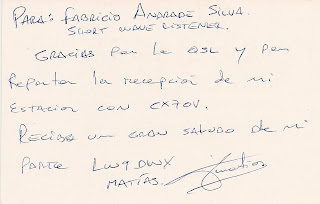 PARA: FABRICIO ANDRADE SILVA.
SHORT WAVE LISTENER.
GRACIAS POR LA QSL Y POR
REPORTAR LA RECEPCION DE MI
ESTACION CON CX7OV.
RECIBA UN GRAN SALUDO DE MI
PARTE LW9DWX
MATÍAS. Matias